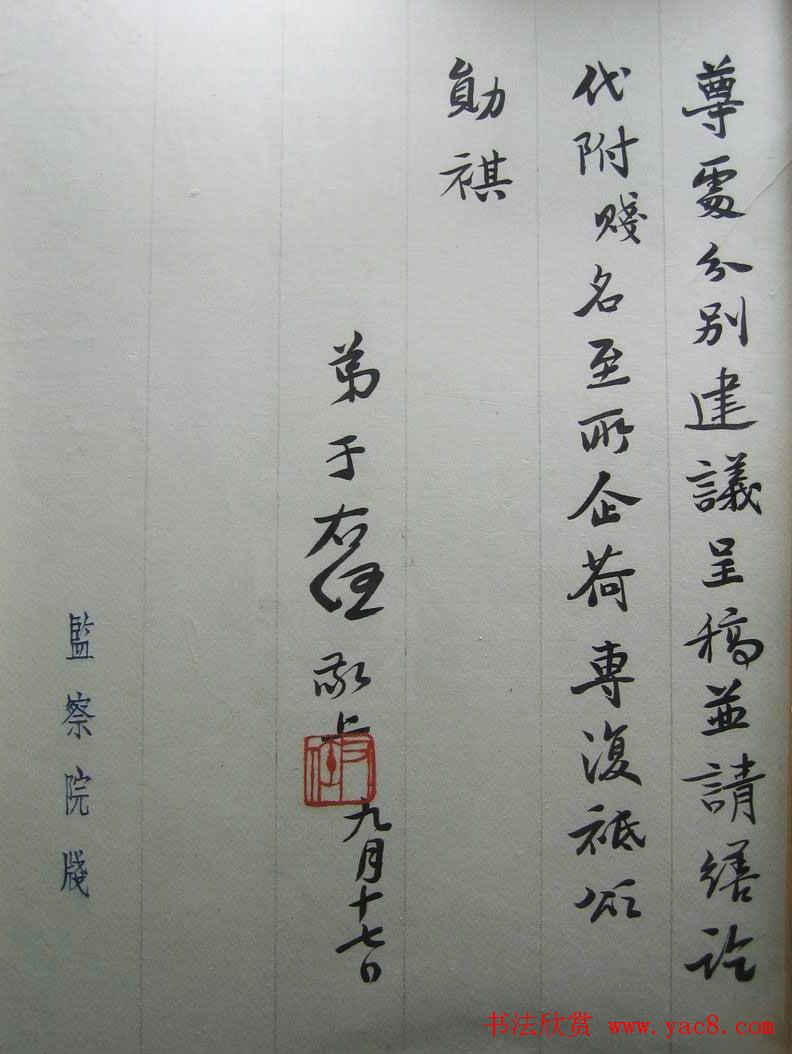 尊處分別建議呈稿並請繕訖
代附賤名至所企荷專復祗頌
勛祺
弟于右任敬上
九月十七日
監察院牋
书法欣赏 www.yac8.com